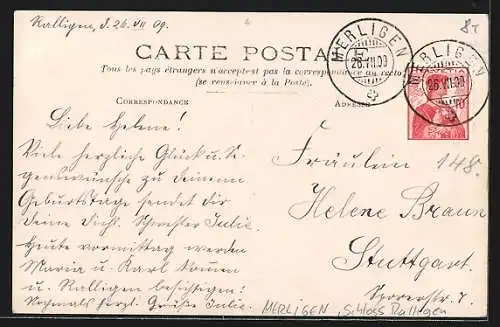 Ralligen, d. 26. VII 09.
8-
CARTE POSTA
Tous les pays étrangers n'acceptent pas la correspondance au recto
(se renseigner à la Poste).
CORRESPONDANCE
ADRESSE
MERLIGEN
26.VII.09
MERLIGEN
26.VII.09
10
Liebe Helene!
Viele herzliche Glück u. Se-
genswünsche zu deinem
Geburtstage sendet dir
deine Schwester Julie.
Heute vormittag werden
Maria u. Karl kommen
u. Ralligen besichtigen!
Nochmals herzl. Grüße Julie.
Fräulein
148.
Helene Braun
Stuttgart.
MERLIGEN, Schloss Ralligen